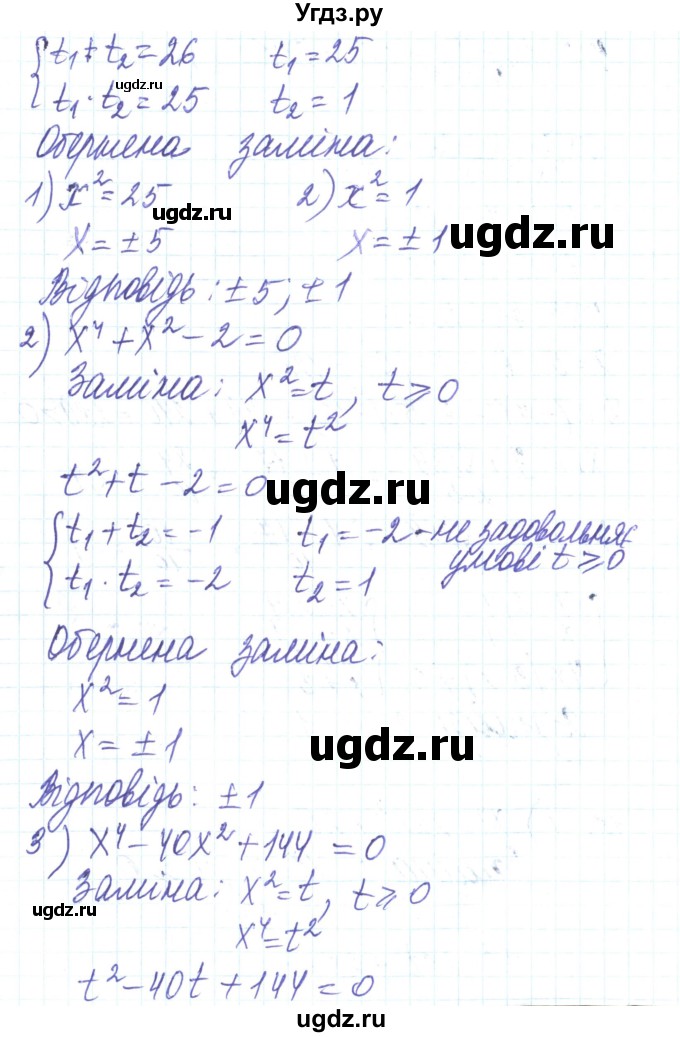 Угдз.ру
t₁ + t₂ = 26 t₁ = 25
ugdz.ru
t₁ · t₂ = 25 t₂ = 1
Обернена заміна:
1) x² = 25 2) x² = 1
ugdz.ru
x = ± 5 x = ± 1
ugdz.ru
Відповідь: ± 5; ± 1
2) x⁴ + x² - 2 = 0
Заміна: x² = t, t ⩾ 0
x⁴ = t²
t² + t - 2 = 0
ugdz.ru
t₁ + t₂ = -1 t₁ = -2 - не задовольняє
умові t ⩾ 0
t₁ · t₂ = -2 t₂ = 1
Обернена заміна:
x² = 1
x = ± 1
ugdz.ru
Відповідь: ± 1
3) x⁴ - 40x² + 144 = 0
Заміна: x² = t, t ⩾ 0
ugdz.ru
x⁴ = t²
t² - 40t + 144 = 0
ugdz.ru